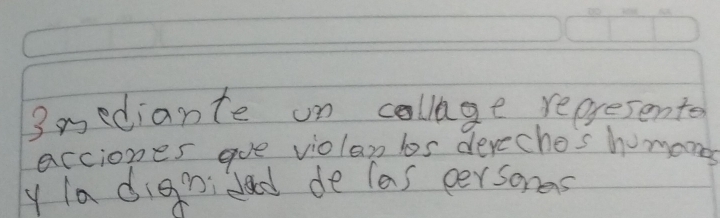 3 mediante un collage represento
acciones que violan los derechos humanos
y la dignidad de las personas